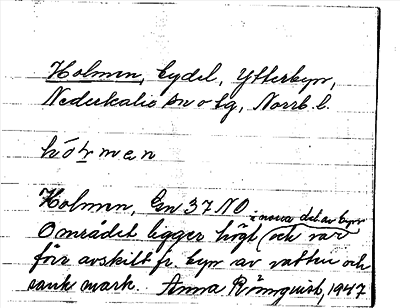 Holmen, bydel, Ytterbyn,
Nederkalix sn o tg, Norrb. l.
hólmen
Holmen, Gn 37 NO
i norra del av byn
Området ligger högt (och var
förr avskilt fr. byn av vatten och
sank mark. Anna 1947